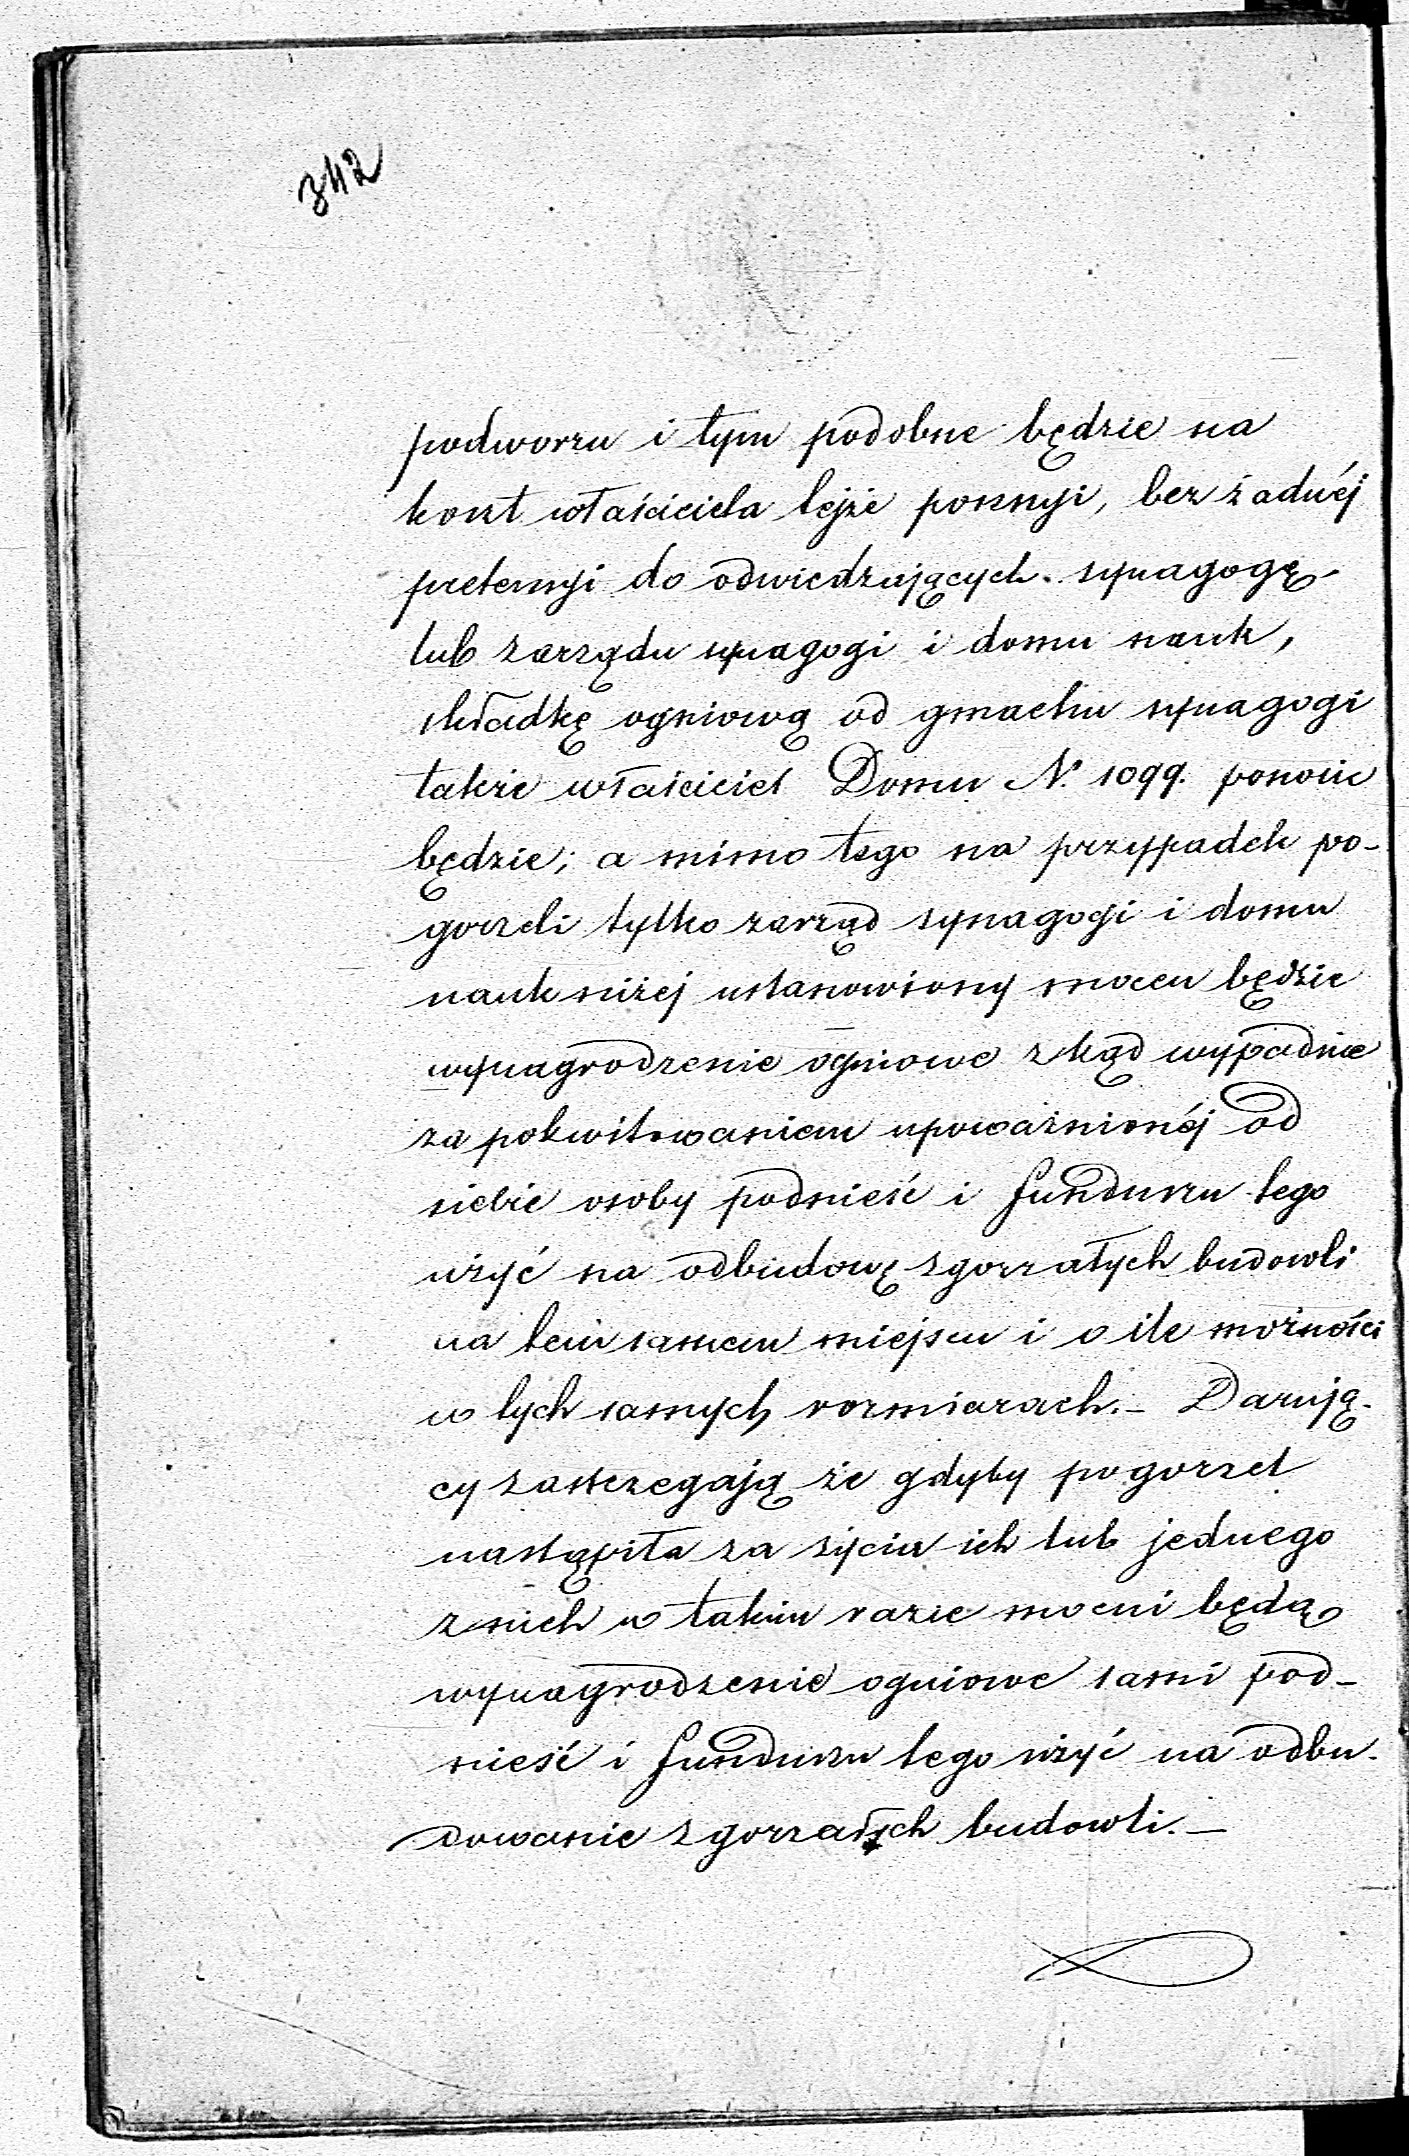 342
podworzu i tym podobne będzie na
koszt właściciela tejże possesyi, bez żadnéj
pretensyi do odwiedzających synagogę
lub zarządu synagogi i domu nauk,
składkę ogniową od gmachu synagogi
także właściciel Domu N. 1099. ponosić
będzie; a mimo tego na przypadek po-
gorzeli tylko zarząd synagogi i domu
nauk niżej ustanowiony mocen będzie
wynagrodzenie ogniowe zkąd wypadnie
za pokwitowaniem upoważnionéj od
siebie osoby podnieść i funduszu tego
użyć na odbudowę zgorzałych budowli
na tem samem miejscu i o ile możności
w tych samych rozmiarach. – Darują-
cy zastrzegają że gdyby pogorzel
nastąpiła za życia ich lub jednego
z nich w takim razie mocni będą
wynagrodzenie ogniowe sami pod-
nieść i funduszu tego użyć na odbu-
dowanie zgorzałych budowli. –